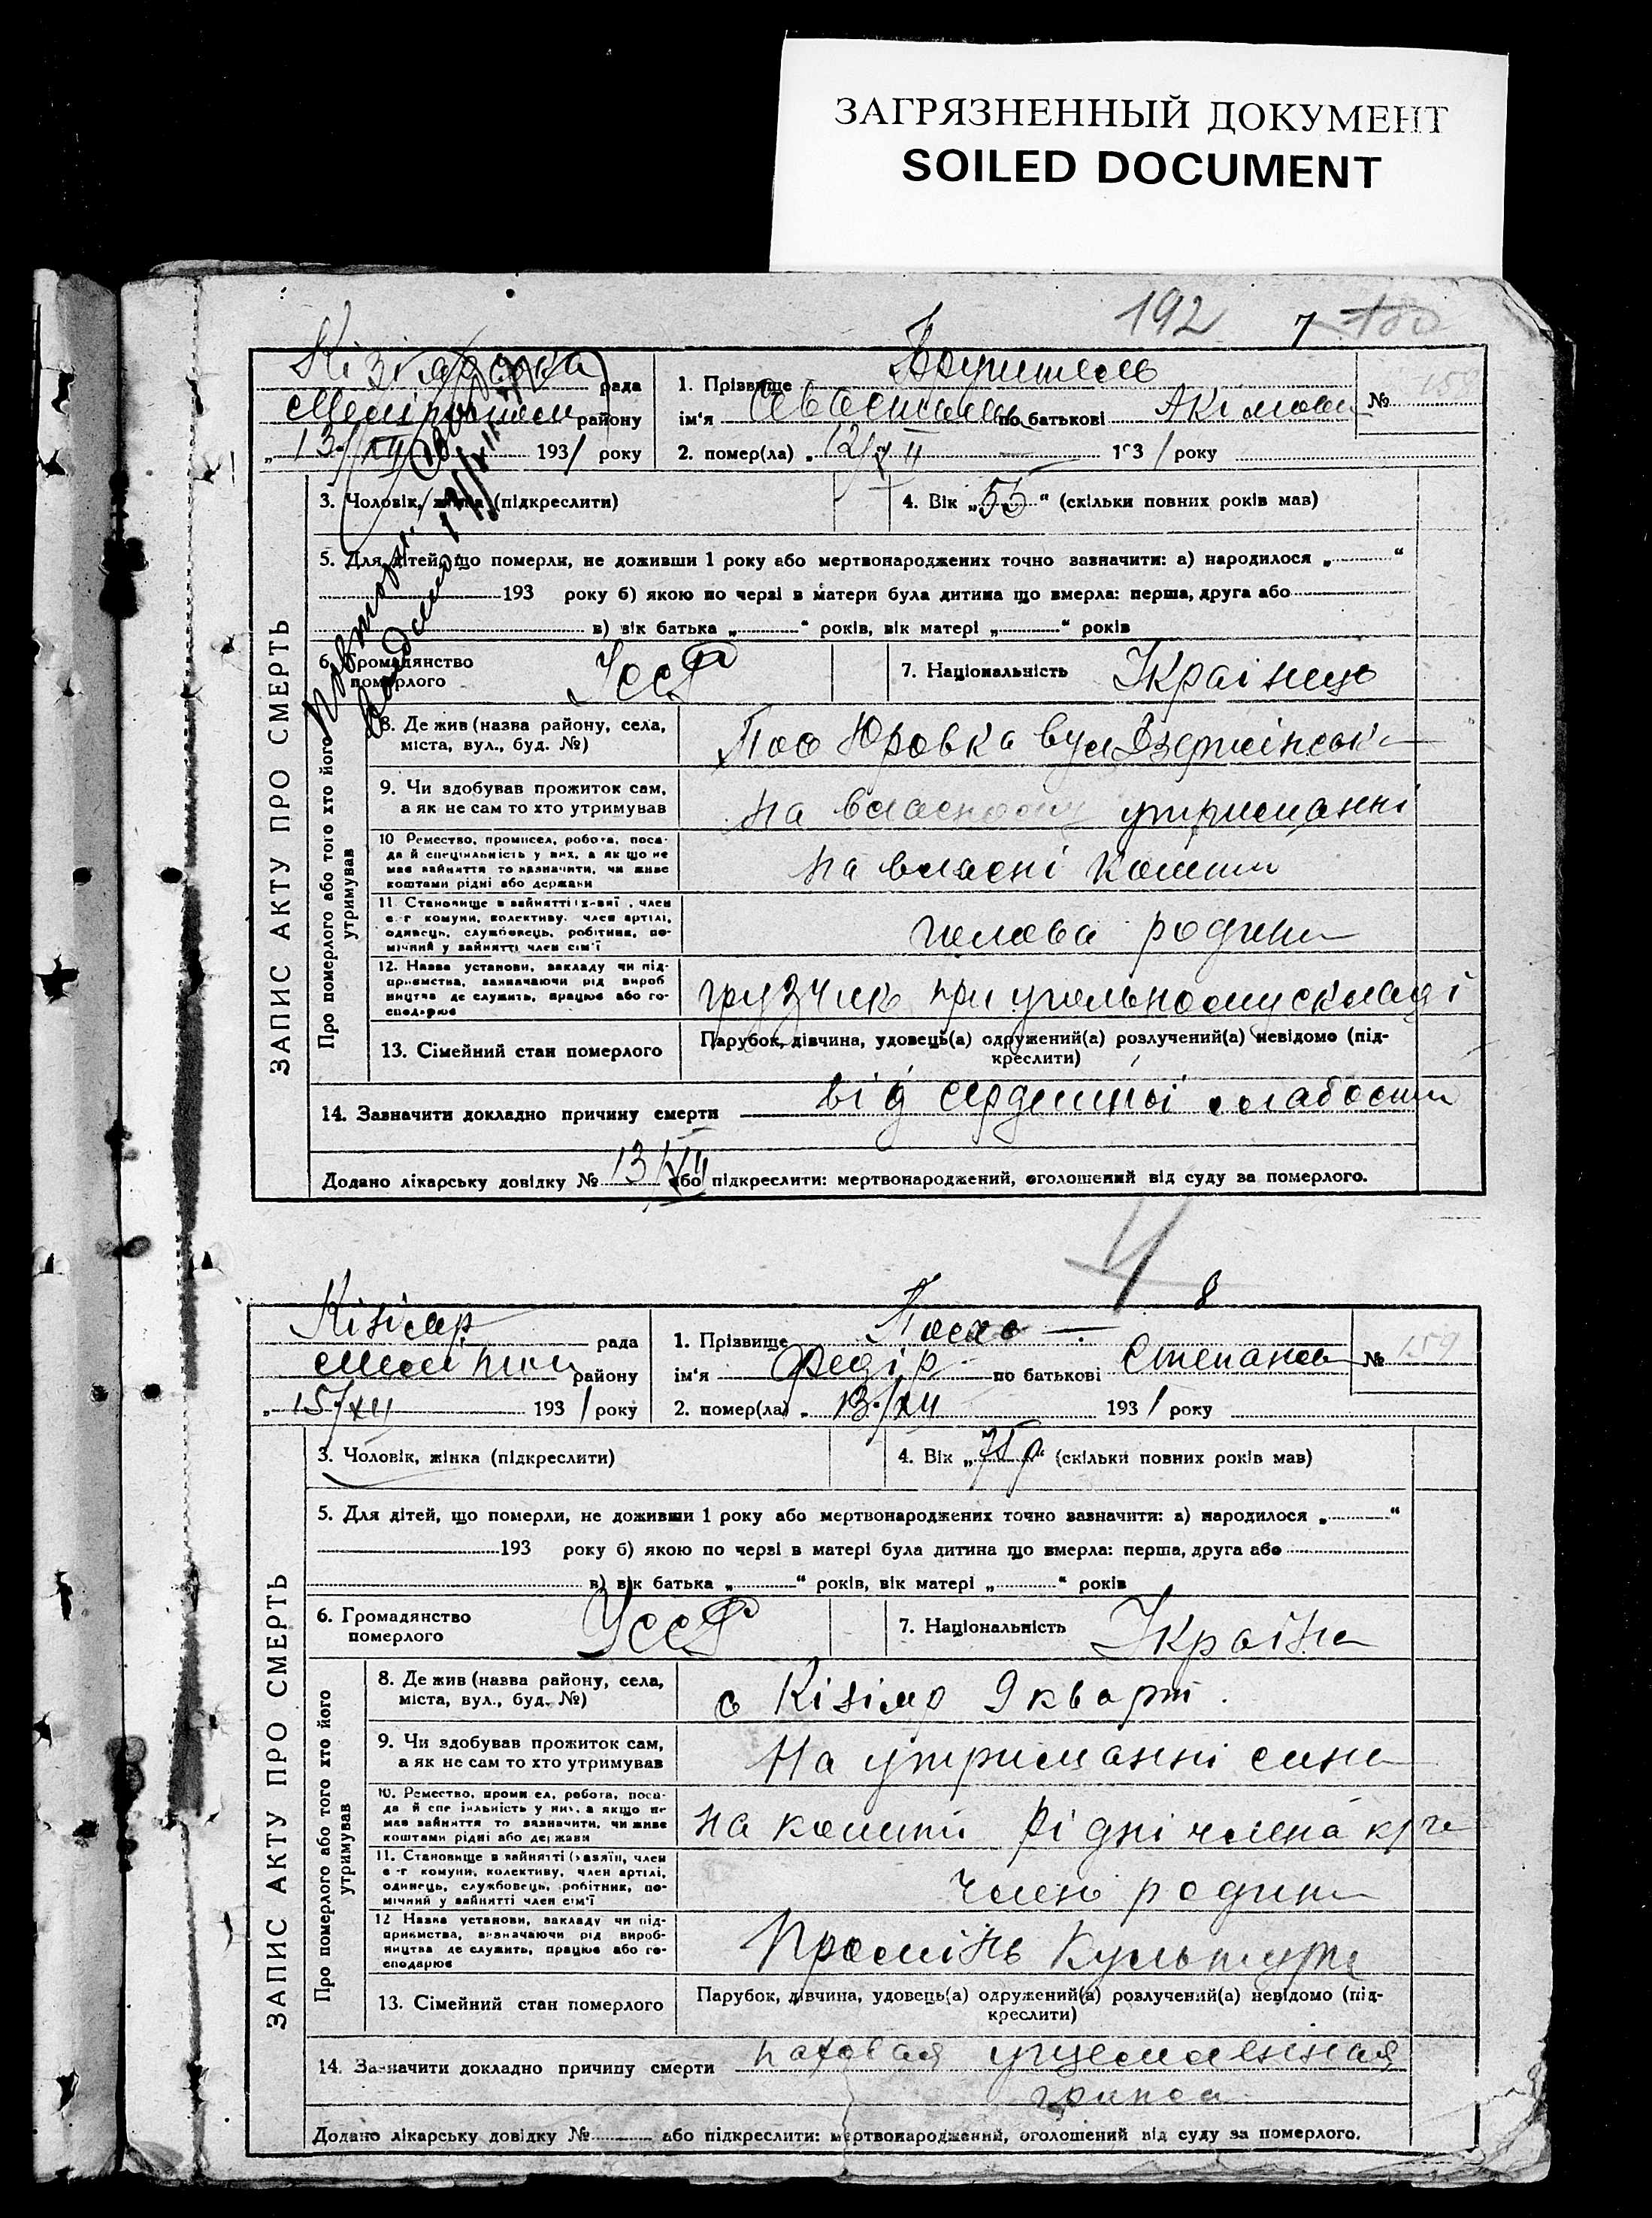 ЗАГРЯЗНЕННЫЙ ДОКУМЕНТ
SOILED DOCUMENT
192 7 180
ЗАПИС АКТУ ПРО СМЕРТЬ
рада
району
"13/XII 1931 року
1. Прізвище
ім'я по батькові
№ 158
2. помер(ла) "12/XII 1931 року
3. Чоловік, жінка (підкреслити)
4. Вік "55" (скільки повних років мав)
5. Для дітей, що померли, не доживши 1 року або мертвонароджених точно зазначити: а) народилося " "
193 року б) якою по черзі в матери була дитина що вмерла: перша, друга або
в) вік батька " " років, вік матері " " років
6. Громадянство померлого УССР
7. Національність Українець
Про померлого або того хто його утримував
8. Де жив (назва району, села,
міста, вул., буд. №)
Пос Юровка вул Дзержінськ
9. Чи здобував прожиток сам,
а як не сам то хто утримував
на власному утриманні
10 Ремество, промисел, робота, поса-
да й спеціальність у них, а як що не
має зайняття то зазначити, чи живе
коштами рідні або держави
на власні кошти
11 Становище в зайнятті (х-зяї, член
с.-г. комуни, колективу, член артілі,
одинець, службовець, робітник, по-
мічний у зайнятті член сім'ї
голова родини
12. Назва установи, закладу чи під-
приємства, зазначаючи рід вироб
ництва де служить, працює або го-
сподарює
грузчик при угольному складі
13. Сімейний стан померлого
Парубок, дівчина, удовець(а) одружений(а) розлучений(а) невідомо (під-
креслити)
14. Зазначити докладно причину смерти від сердешної слабости
Додано лікарську довідку № 13/XII або підкреслити: мертвонароджений, оголошений від суду за померлого.
8
ЗАПИС АКТУ ПРО СМЕРТЬ
Кізіяр рада
району
"15/XII 1931 року
1. Прізвище
ім'я Федір по батькові Степанов
№ 159
2. помер(ла) " 13/XII 1931 року
3. Чоловік, жінка (підкреслити)
4. Вік "75р" (скільки повних років мав)
5. Для дітей, що померли, не доживши 1 року або мертвонароджених точно зазначити: а) народилося " "
193 року б) якою по черзі в матері була дитина що вмерла: перша, друга або
в) вік батька " " років, вік матері " " років
6. Громадянство померлого УССР
7. Національність Україне
Про померлого або того хто його утримував
8. Де жив (назва району, села,
міста, вул., буд. №)
с Кізіяр 9 кварт.
9. Чи здобував прожиток сам,
а як не сам то хто утримував
На утриманні сина
10. Ремество, промисел, робота, поса-
да й спеціальність у них, а якщо не
має зайняття то зазначити, чи живе
коштами рідні або держави
на кошти рідні члена
11. Становище в зайнятті (хазяїн, член
с.-г. комуни, колективу, член артілі,
одинець, службовець, робітник, по-
мічний у зайнятті член сім'ї
член родини
12 Назва установи, закладу чи під-
приємства, зазначаючи рід вироб-
ництва де служить, працює або го-
сподарює
Промінь Культури
13. Сімейний стан померлого
Парубок, дівчина, удовець(а) одружений(а) розлучений(а) невідомо (під-
креслити)
14. Зазначити докладно причину смерти паховая ущемленная
грижа
Додано лікарську довідку № або підкреслити: мертвонароджений, оголошений від суду за померлого.